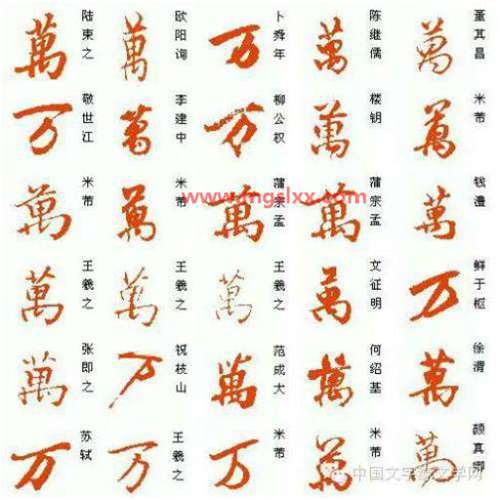 萬 陆柬之 萬 欧阳询 万 卜舜年 萬 陈继儒 萬 董其昌
万 敬世江 萬 李建中 万 柳公权 萬 楼钥 萬 米芾
萬 米芾 萬 米芾 萬 蒲宗孟 萬 蒲宗孟 萬 钱澧
www.mgslxx.com
萬 王羲之 萬 王羲之 萬 王羲之 萬 文征明 万 鲜于枢
萬 张即之 万 祝枝山 萬 范成大 萬 何绍基 萬 徐渭
万 苏轼 万 王羲之 万 米芾 萬 米芾 萬 颜真卿
中国文字 文学网